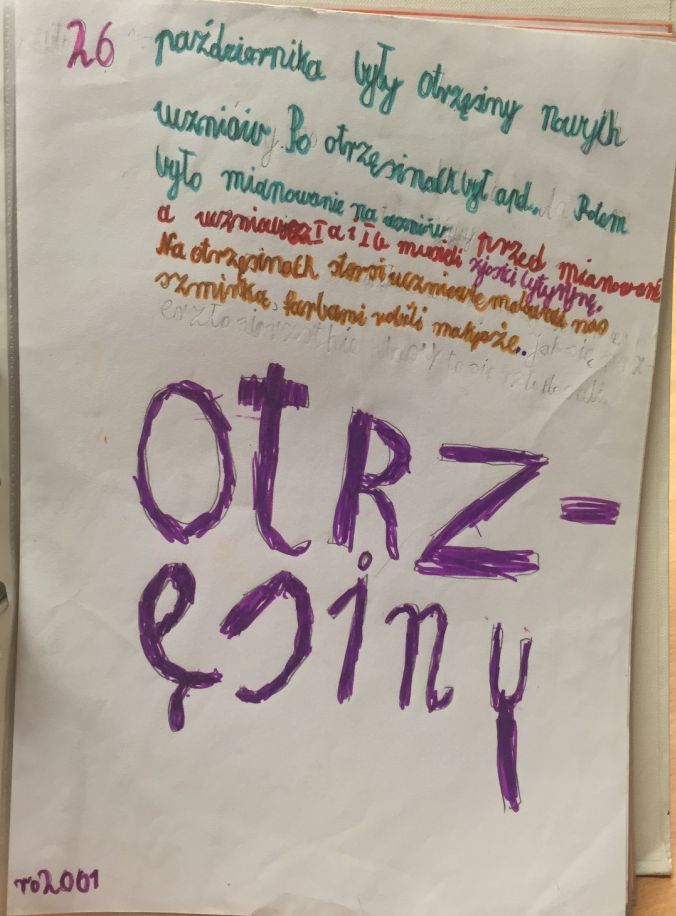 26 października były otrzęsiny nowych
uczniów. Po otrzęsinach był apel. Potem
było mianowanie na uczniów przed mianowani
a uczniowie z Ia i Ib musieli zjeść cytrynę.
Na otrzęsinach starsi uczniowie malowali nas
szminką, farbami robili makijaże..
OtRZ-
ęsiny
ro2001